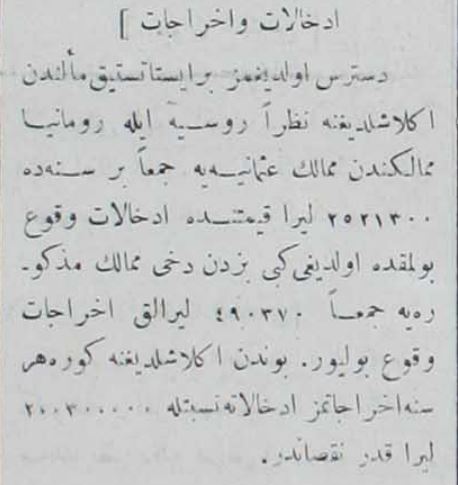 ادخالات واخراجات ]
دسترس اولدیغمز بر ایستاتستیق مألندن
اكلاشلدیغنه نظراً روسیه ایله رومانیا
ممالكندن ممالك عثمانیه‌یه جمعاً بر سنه‌ده
٢٥٢١٣٠٠ لیرا قیمتنده ادخالات وقوع
بولمقده اولدیغی كبی بزدن دخی ممالك مذكو-
ره‌یه جمعاً ٤٩٠٣٧٠ لیرالق اخراجات
وقوع بولیور. بوندن اكلاشلدیغنه كوره هر
سنه اخراجاتمز ادخالاته نسبتله ٢٠٠٣٠٠٠٠٠
لیرا قدر نقصاندر.